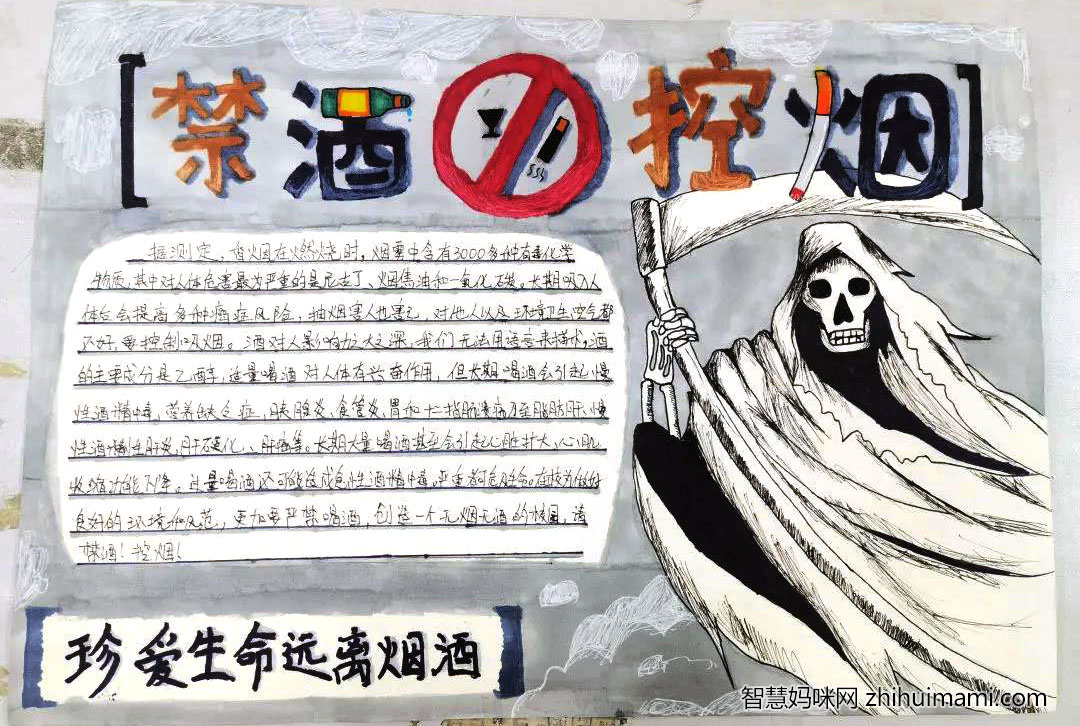 禁酒控烟
据测定，香烟在燃烧时，烟雾中含有3000多种有毒化学
物质，其中对人体危害最为严重的是尼古丁、烟焦油和一氧化碳。长期吸入人
体后会提高多种癌症风险，抽烟害人也害己，对他人以及环境卫生空气都
不好，要控制吸烟。酒对人影响力之大之深，我们无法用语言来描述，酒
的主要成分是乙醇，适量喝酒对人体有兴奋作用，但长期喝酒会引起慢
性酒精中毒，营养缺乏症，胰腺炎、食管炎、胃和十二指肠溃疡乃至脂肪肝、慢
性酒精性肝炎，肝硬化、肝癌等。长期大量喝酒甚至会引起心脏扩大、心肌
收缩功能下降。过量喝酒还可能造成急性酒精中毒，严重都危及生命。在校为做好
良好的环境和风范，更加要严禁喝酒，创造一个无烟无酒的校园，请
禁酒！控烟！
珍爱生命远离烟酒
智慧妈咪网 zhihuimami.com